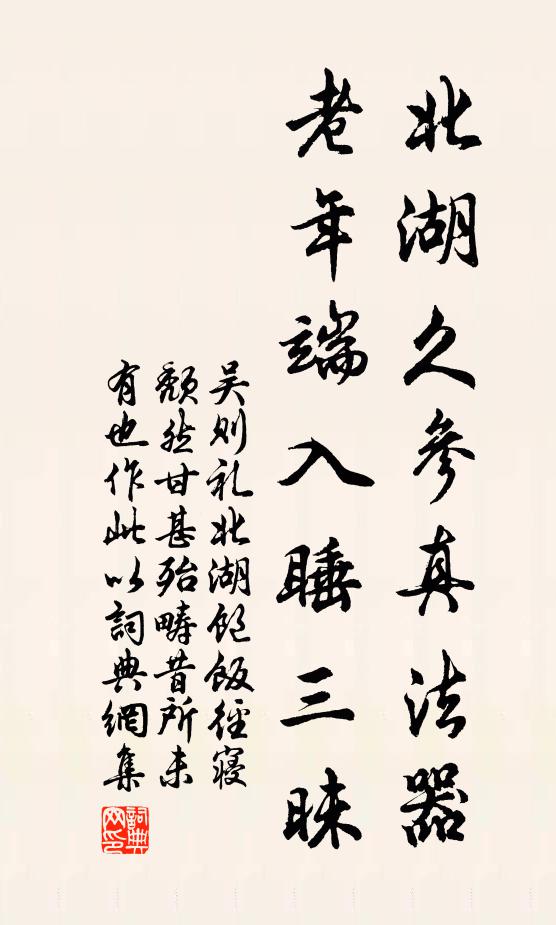 北湖久参真法器
老年端入睡三昧
吴则礼北湖饱饭径寝
颓然甘甚殆畴昔所未
有也作此以詞典網集
詞典网印